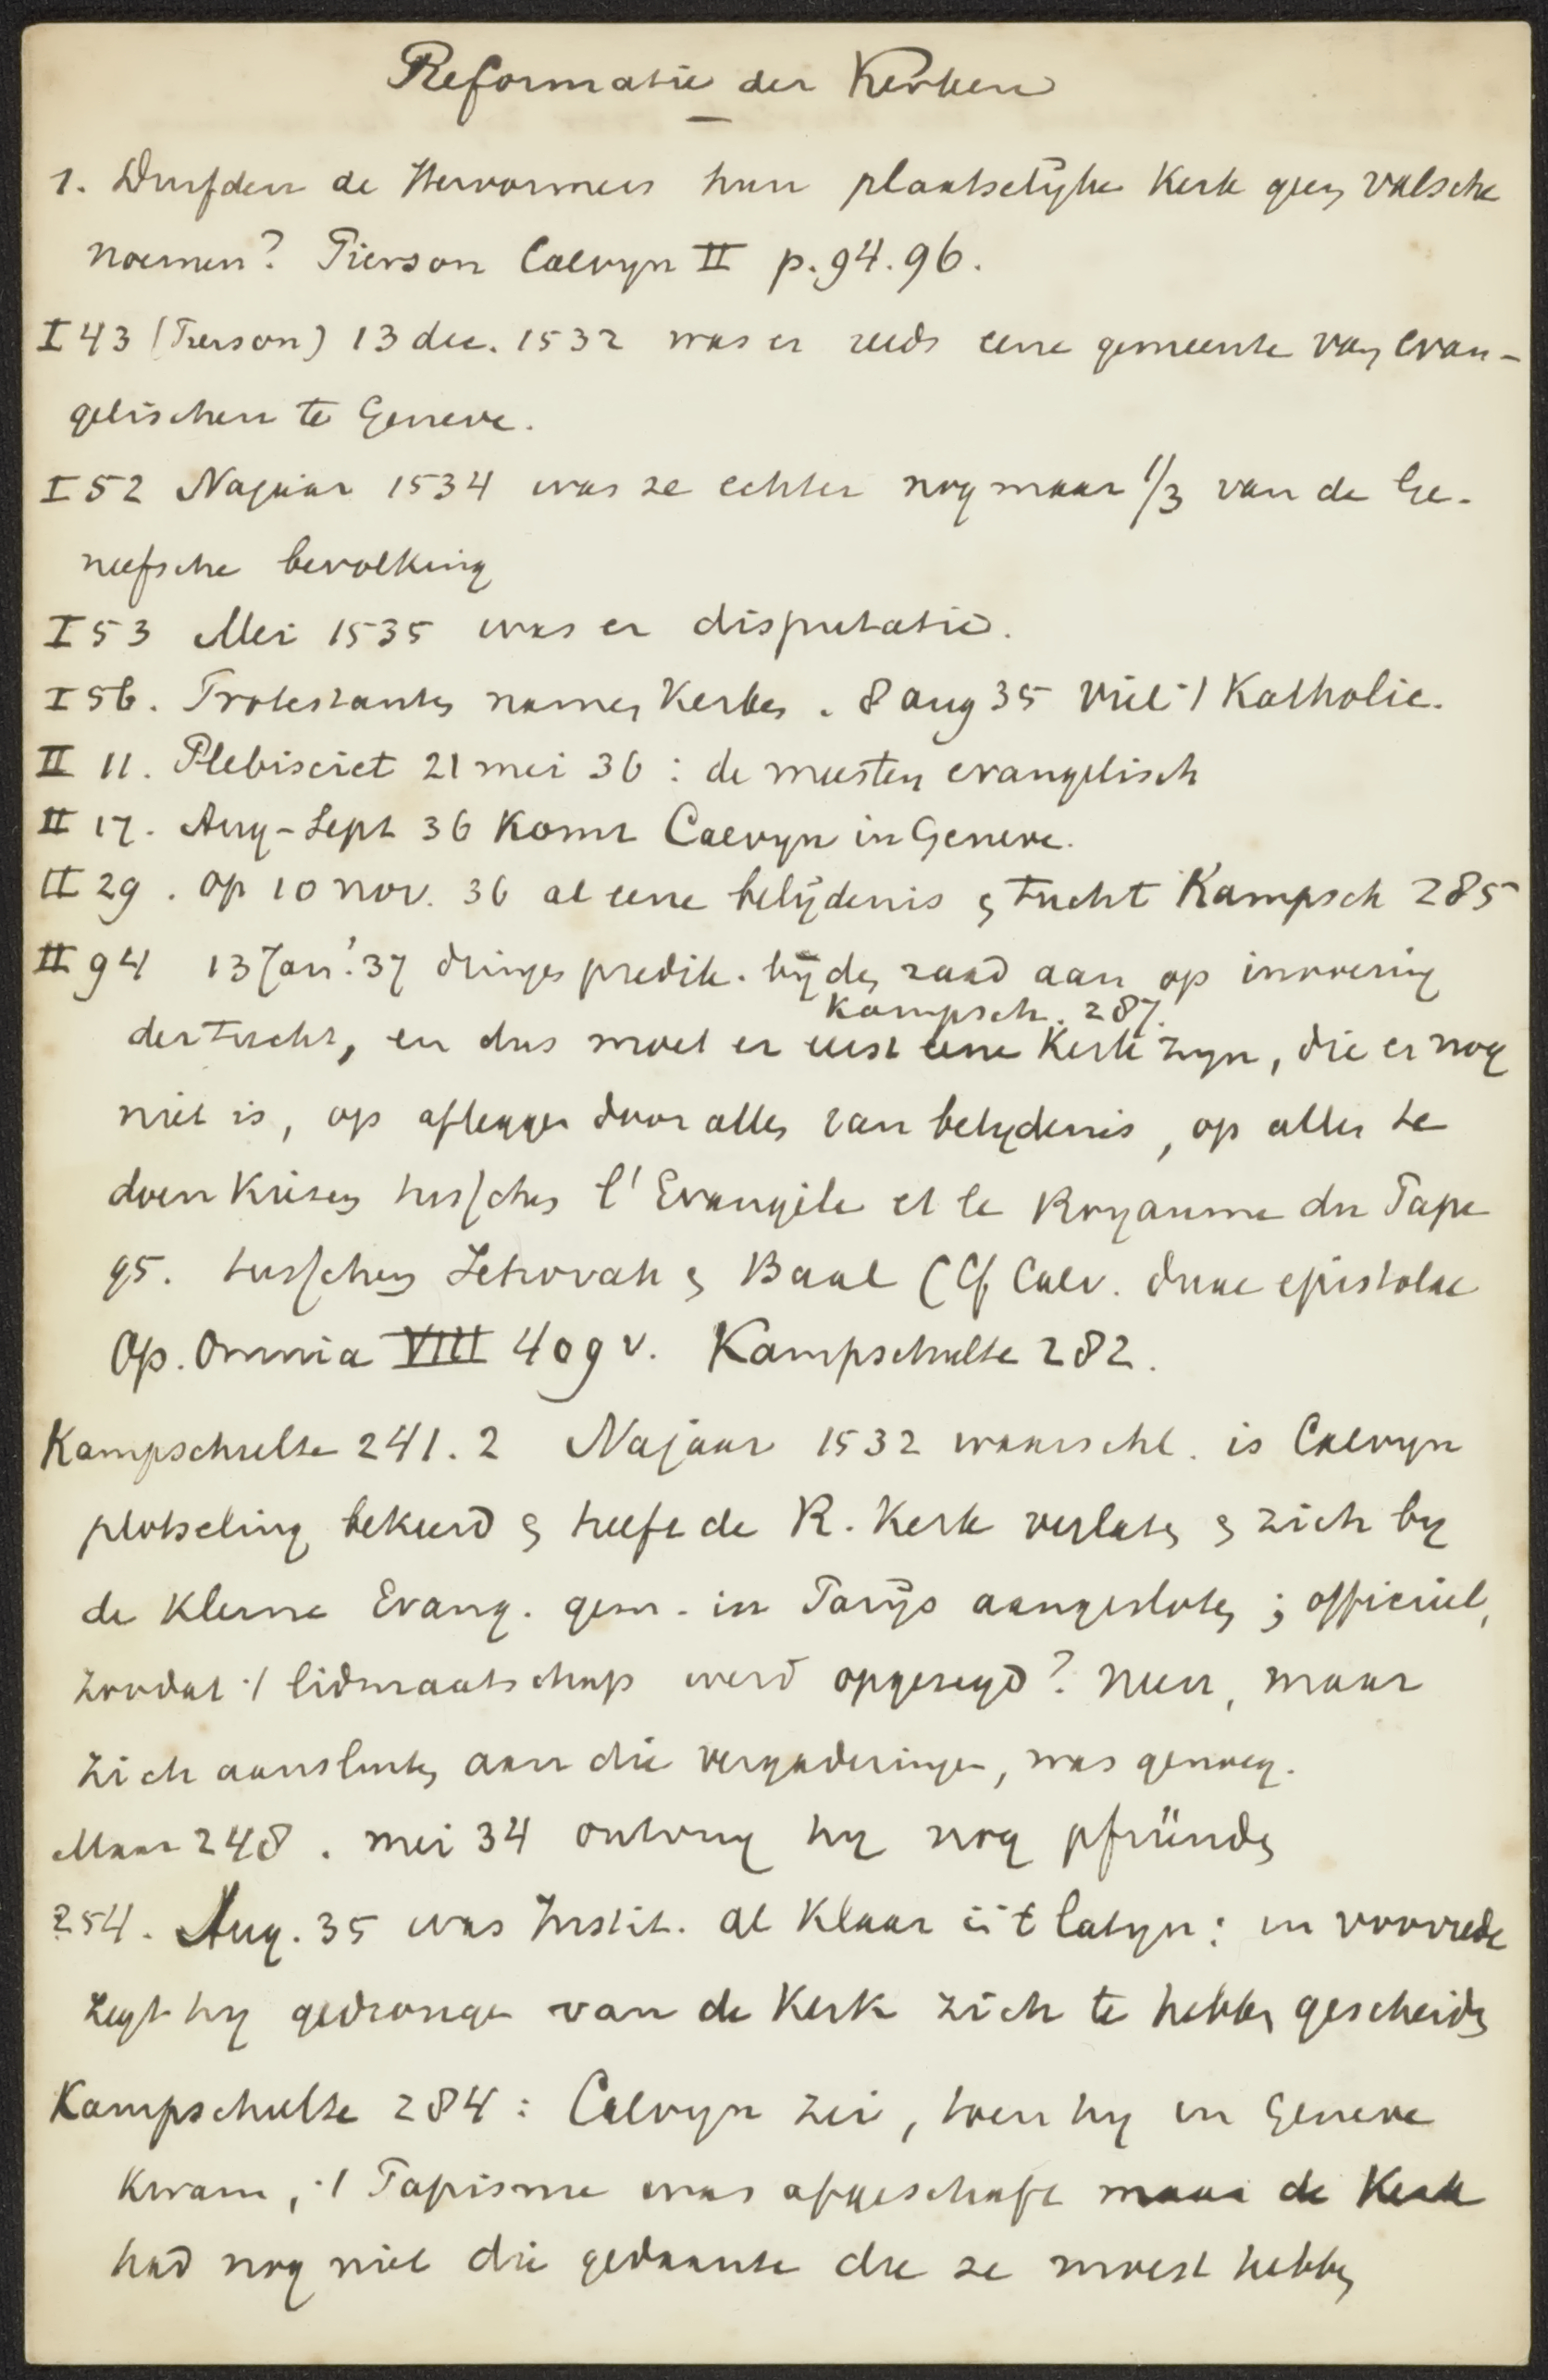 Reformatie der Kerken
1. Durfden de Hervormers hun plaatselijke Kerk geen valsche
noemen? Pierson Calvyn II p. 94. 96.
I 43 (Pierson) 13 dec. 1532 was er reeds eene gemeente van evan-
gelischen te Geneve.
I 52 Najaar 1534 was ze echter nog maar 1/3 van de Ge-
neefsche bevolking
I 53 Mei 1535 was er disputatie.
I 56. Protestanten namen Kerken. 8 aug 35 viel 't Katholic.
II 11. Plebisciet 21 mei 36: de meesten evangelisch
II 17. Aug-Sept 36 Komt Calvyn in Geneve.
II 29. Op 10 nov. 36 al eene belijdenis & tucht Kampsch 285
II 94 13 Jan. '37 dringen predik. bij den raad aan op invoering
Kampsch. 287.
der tucht, en dus moet er eerst eene Kerk zyn, die er nog
niet is, op afleggen door allen van belydenis, op allen te
doen Kiezen tusschen l'Evangile et le Royaume du Pape
95. tusschen Jehovah & Baal (Cf Calv. duae epistolae
Op. Omnia VIII 409 v. Kampschulte 282.
Kampschulte 241.2 Najaar 1532 waarschl. is Calvyn
plotseling bekeerd & heeft de R. Kerk verlaten & zich by
de Kleine Evang. gem. in Parijs aangesloten; officieel,
zoodat 't lidmaatschap werd opgezegd? Neen, maar
zich aansluiten aan die vergaderingen, was genoeg.
Maar 248. mei 34 ontving hy nog pfründen
254. Aug. 35 was Instit. al Klaar in 't latyn: in voorrede
zegt hy gedrongen van de Kerk zich te hebben gescheiden
Kampschulte 284: Calvyn zei, toen hy in Geneve
Kwam, 't Papisme was afgeschaft maar de Kerk
had nog niet die gedaante die ze moest hebben